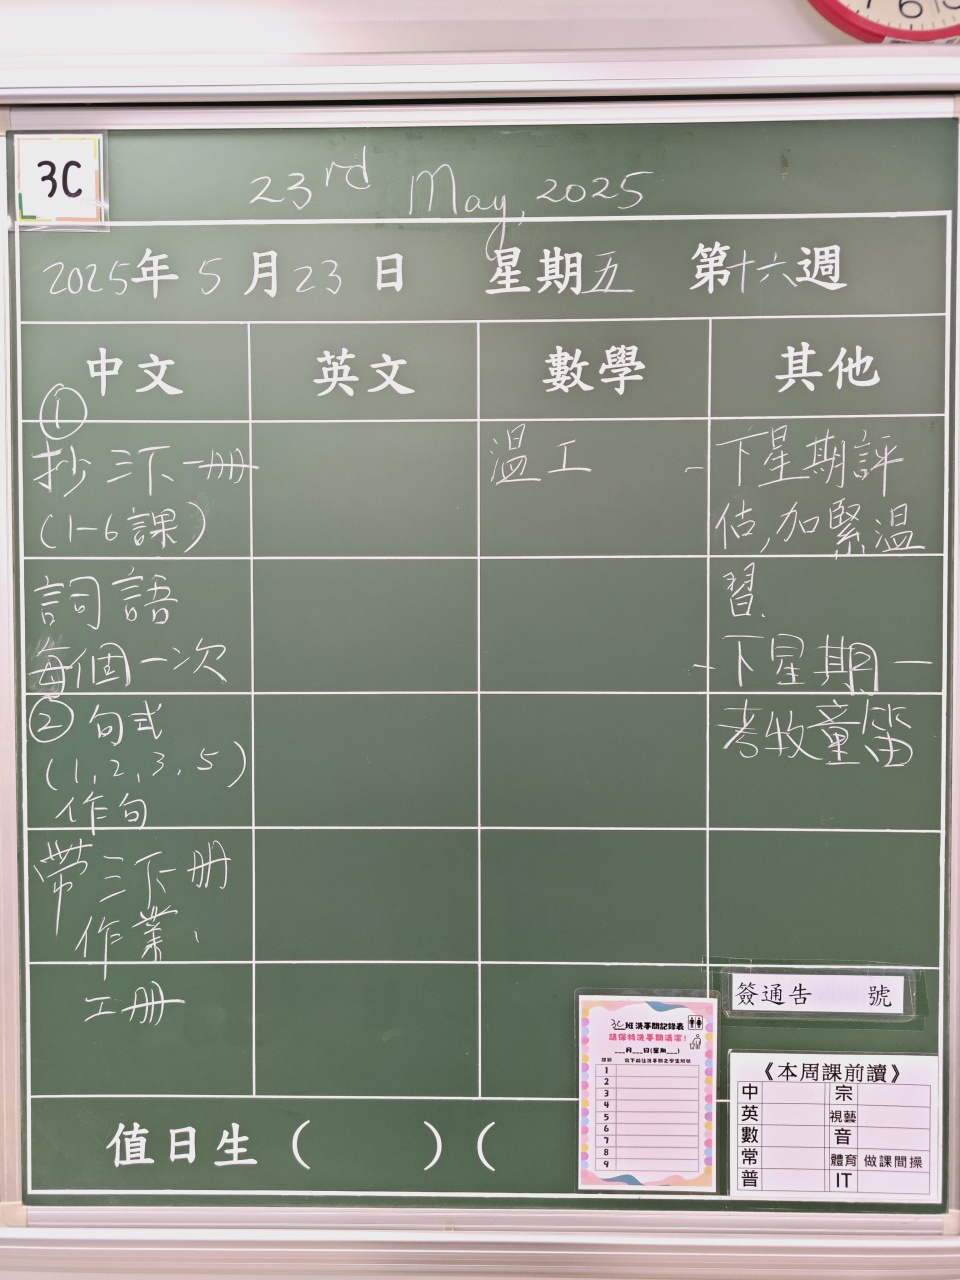 3C
23rd May, 2025
2025年5月23日 星期五 第十六週
中文 英文 數學 其他
①
抄三下一冊
(1-6課)
詞語
每個一次
② 句式
(1,2,3,5)
作句
帶三下冊
作業、
工冊
溫工
-下星期評
估,加緊溫
習.
-下星期一
考牧童笛
簽通告 號
3C班洗手間記錄表
請保持洗手間清潔!
___月___日(星期___)
1
2
3
4
5
6
7
8
9
《本周課前讀》
中 宗
英 視藝
數 音
常 體育 做課間操
普 IT
值日生 ( ) (